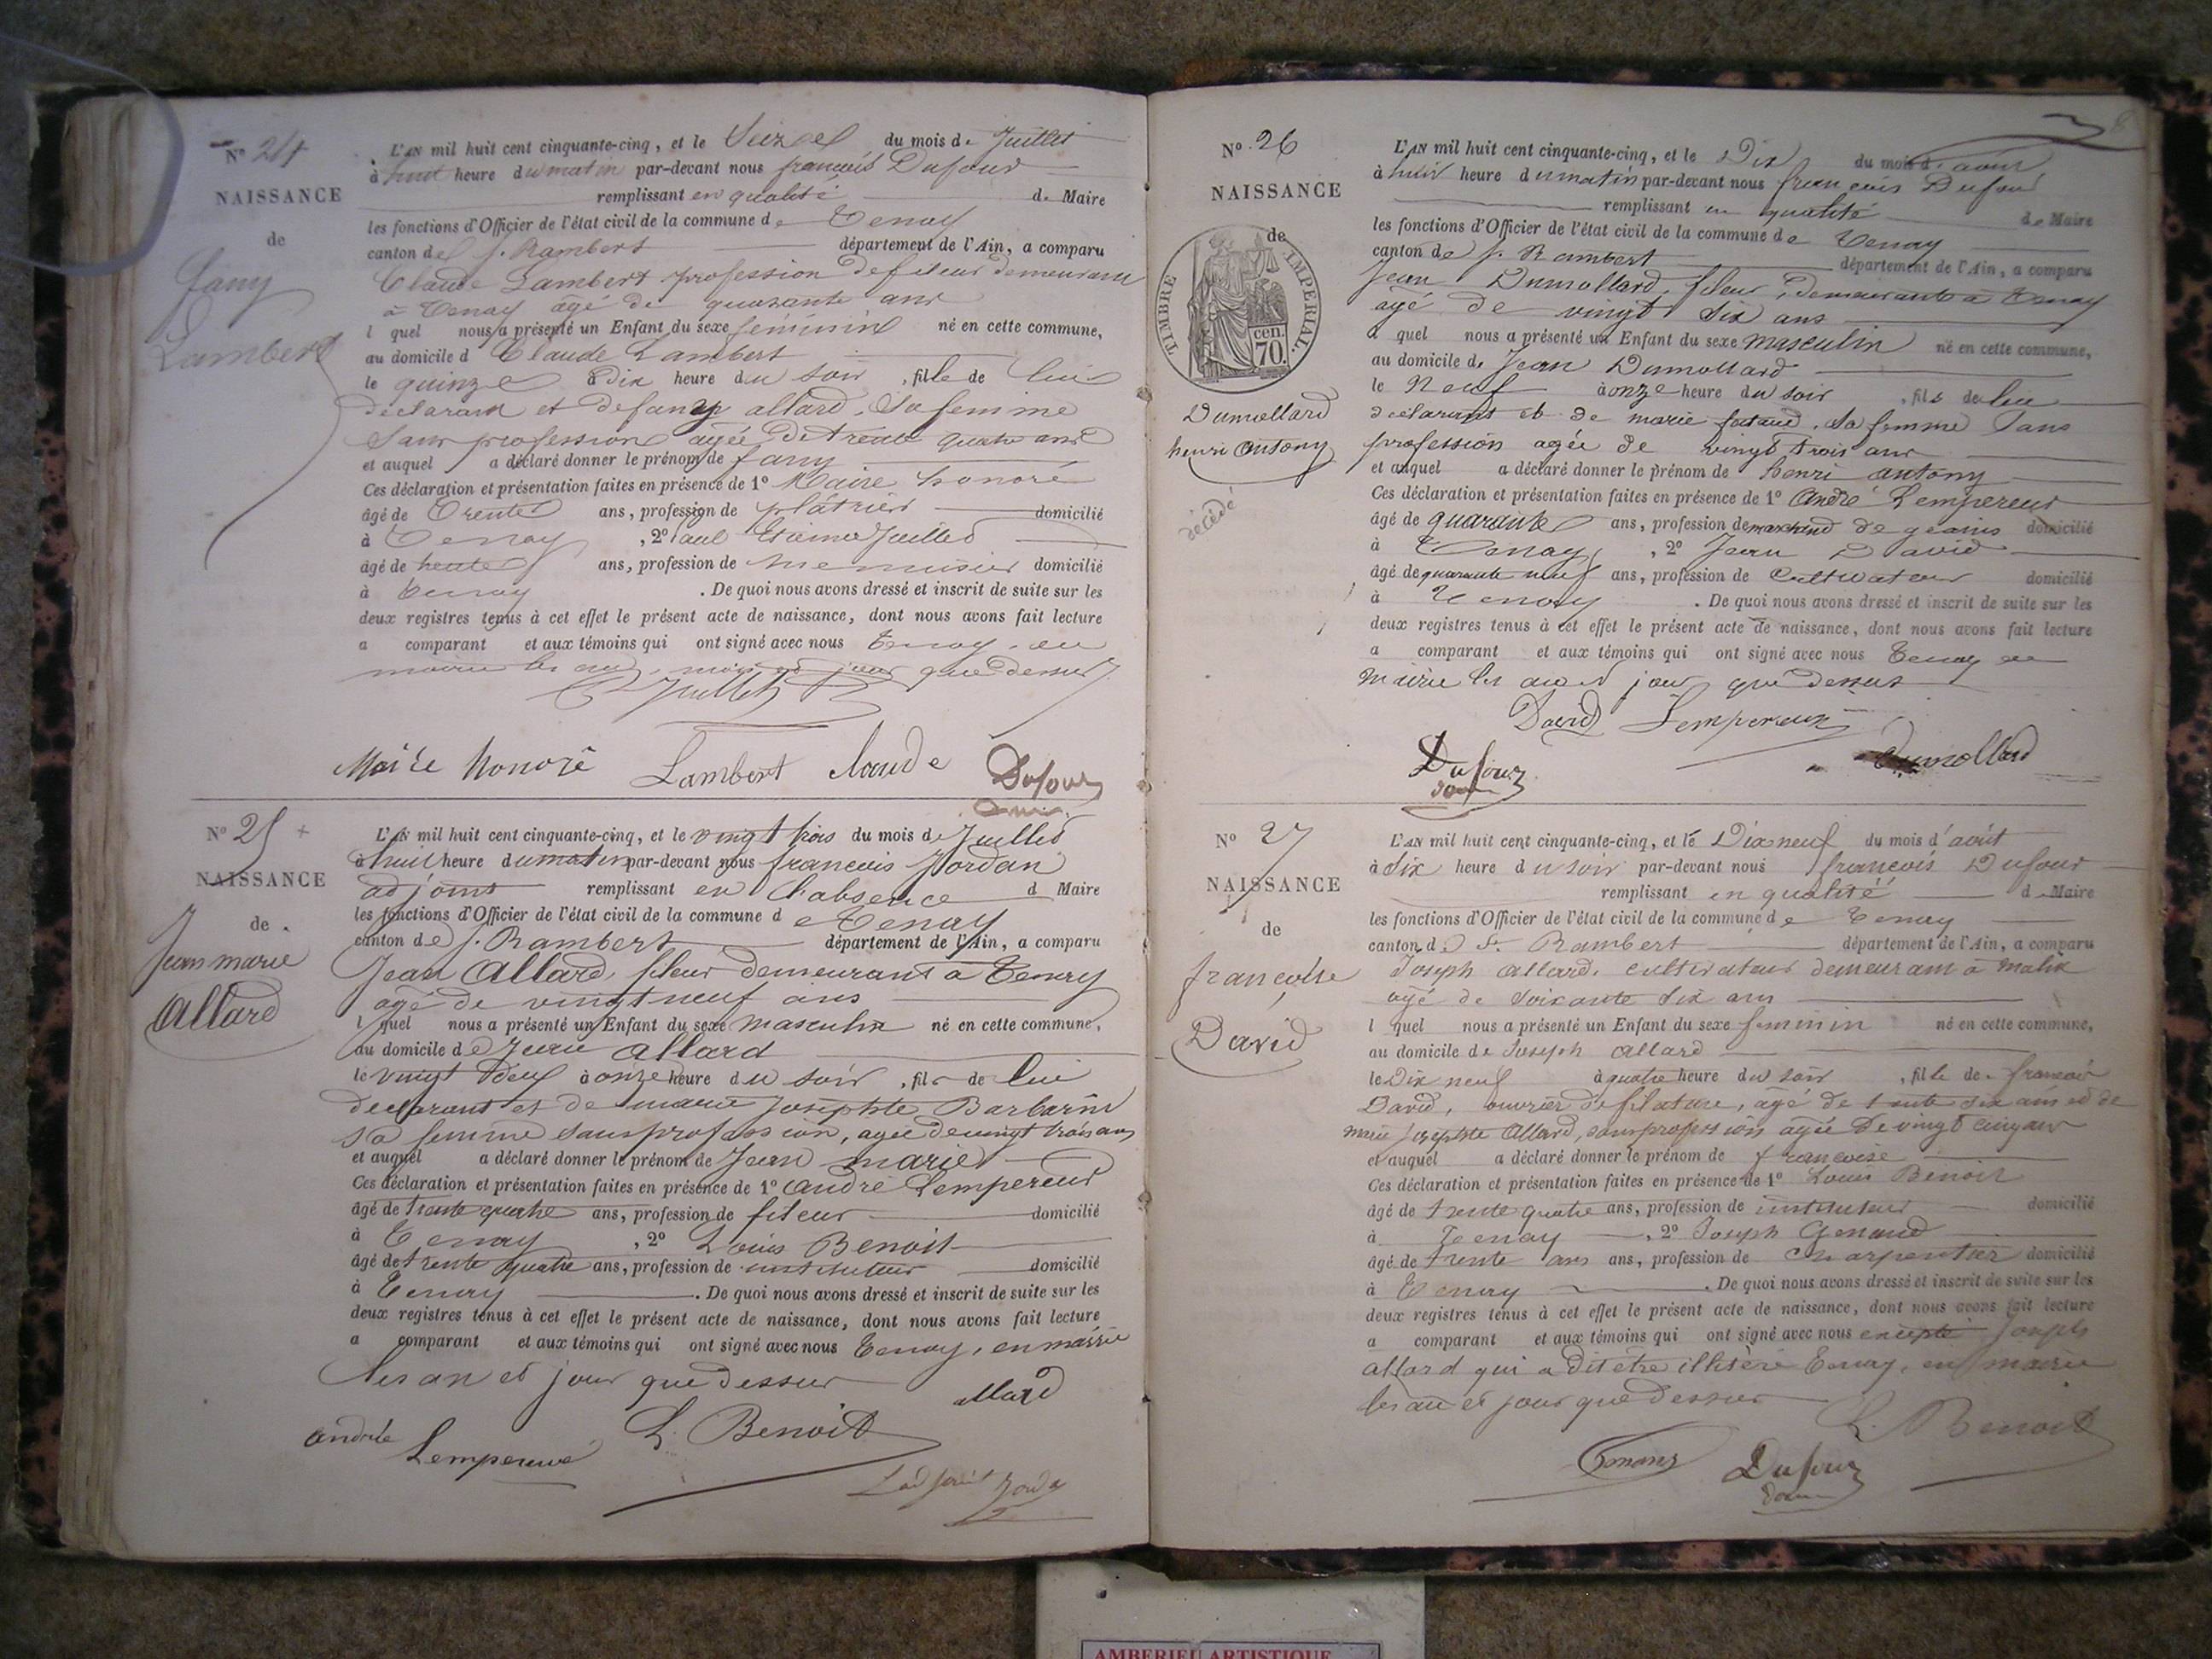 N° 24
NAISSANCE
de
fany
Lambert
L'AN mil huit cent cinquante-cinq, et le Seize du mois de Juillet
à huit heure du matin par-devant nous françois Dufour
remplissant en qualité de Maire
les fonctions d'Officier de l'état civil de la commune de Tenay
canton de S. Rambert département de l'Ain, a comparu
Claude Lambert profession de fileur demeurant
à Tenay agé de quarante ans
l quel nous a présenté un Enfant du sexe féminin né en cette commune,
au domicile d Claude Lambert
le quinze à dix heure du soir , fille de lui
déclarant et de fany allard, Sa femme
Sans profession agée de trente quatre ans
et auquel a déclaré donner le prénom de fany
Ces déclaration et présentation faites en présence de 1° Maire honoré
âgé de Trente ans, profession de plâtrier domicilié
à Tenay , 2° Paul Juillet
âgé de trente ans, profession de menuisier domicilié
à Tenay . De quoi nous avons dressé et inscrit de suite sur les
deux registres tenus à cet effet le présent acte de naissance, dont nous avons fait lecture
a comparant et aux témoins qui ont signé avec nous Tenay, en
mairie les an, mois et jour que dessus
Juillet
Maire honoré Lambert claude Dufour
N° 25
NAISSANCE
de
Jean marie
Allard
L'AN mil huit cent cinquante-cinq, et le vingt trois du mois de Juillet
à huit heure du matin par-devant nous francois Jordan
adjoint remplissant en l'absence d Maire
les fonctions d'Officier de l'état civil de la commune d e Tenay
canton de S. Rambert département de l'Ain, a comparu
Jean Allard, fileur demeurant à Tenay
agé de vingt neuf ans
l quel nous a présenté un Enfant du sexe masculin né en cette commune,
au domicile de Jean allard
le vingt deux à onze heure du soir , fils de lui
déclarant et de marie Josephte Barbarin
sa femme sans profession, agée de vingt trois ans
et auquel a déclaré donner le prénom de Jean marie
Ces déclaration et présentation faites en présence de 1° André Lempereur
âgé de trente quatre ans, profession de fileur domicilié
à Tenay , 2° Louis Benoit
âgé de trente quatre ans, profession de instituteur domicilié
à Tenay . De quoi nous avons dressé et inscrit de suite sur les
deux registres tenus à cet effet le présent acte de naissance, dont nous avons fait lecture
a comparant et aux témoins qui ont signé avec nous Tenay, en mairie
les an et jour que dessus
allard
andrée Lempereur L. Benoit
L'adjoint Jordan
N° 26
NAISSANCE
de
TIMBRE IMPERIAL.
cen. 70.
Dumollard
henri Antony
décédé
L'AN mil huit cent cinquante-cinq, et le Dix du mois d'août
à huit heure du matin par-devant nous françois Dufour
remplissant en qualité de Maire
les fonctions d'Officier de l'état civil de la commune de Tenay
canton de S. Rambert département de l'Ain, a comparu
Jean Dumollard, fileur, demeurant à Tenay
agé de vingt six ans
l quel nous a présenté un Enfant du sexe masculin né en cette commune,
au domicile de Jean Dumollard
le Neuf à onze heure du soir , fils de lui
déclarant et de marie , Sa femme Sans
profession agée de vingt trois ans
et auquel a déclaré donner le prénom de henri antony
Ces déclaration et présentation faites en présence de 1° André Lempereur
âgé de quarante ans, profession de marchand de grains domicilié
à Tenay, , 2° Jean David
âgé de quarante neuf ans, profession de Cultivateur domicilié
à Tenay . De quoi nous avons dressé et inscrit de suite sur les
deux registres tenus à cet effet le présent acte de naissance, dont nous avons fait lecture
a comparant et aux témoins qui ont signé avec nous Tenay en
mairie les an et jour que dessus
David Lempereur
Dufour Dumollard
N° 27
NAISSANCE
de
françoise
David
L'AN mil huit cent cinquante-cinq, et le Dix neuf du mois d'août
à six heure du soir par-devant nous françois Dufour
remplissant en qualité d Maire
les fonctions d'Officier de l'état civil de la commune de Tenay
canton de S. Rambert département de l'Ain, a comparu
Joseph allard, cultivateur demeurant à Malix
agé de soixante six ans
l quel nous a présenté un Enfant du sexe féminin né en cette commune,
au domicile de Joseph allard
le Dix neuf à quatre heure du soir , fille de francois
David, ouvrier de filature, agé de trente six ans et de
marie Josephte Allard, sans profession agée de vingt cinq ans
et auquel a déclaré donner le prénom de françoise
Ces déclaration et présentation faites en présence de 1° Louis Benoit
âgé de trente quatre ans, profession de instituteur domicilié
à Tenay , 2° Joseph Genand
âgé de trente ans ans, profession de charpentier domicilié
à Tenay . De quoi nous avons dressé et inscrit de suite sur les
deux registres tenus à cet effet le présent acte de naissance, dont nous avons fait lecture
a comparant et aux témoins qui ont signé avec nous excepté Joseph
allard qui a dit etre illitéré Tenay, en mairie
les an et jour que dessus
L. Benoit
Dufour
AMBERIEU ARTISTIQUE